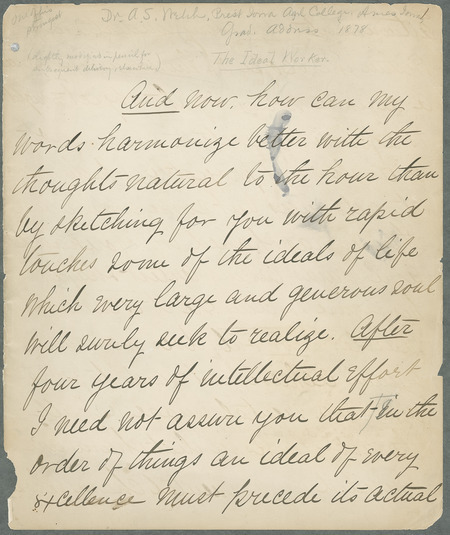 Dr. A. S. Welch, Prest Iowa Agrl College, Ames Iowa
Grad. Address 1878
The Ideal Worker
And now, how can my
words harmonize better with the
thoughts natural to the hour than
by sketching for you with rapid
touches some of the ideals of life
which every large and generous soul
will surely seek to realize. After
four years of intellectual effort
I need not assure you that in the
order of things an ideal of every
excellence must precede its actual